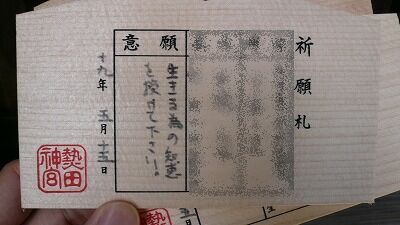 祈願札
願意
生きる為の知恵
を授けて下さい。
十九年 五月 十五日
熱田神宮